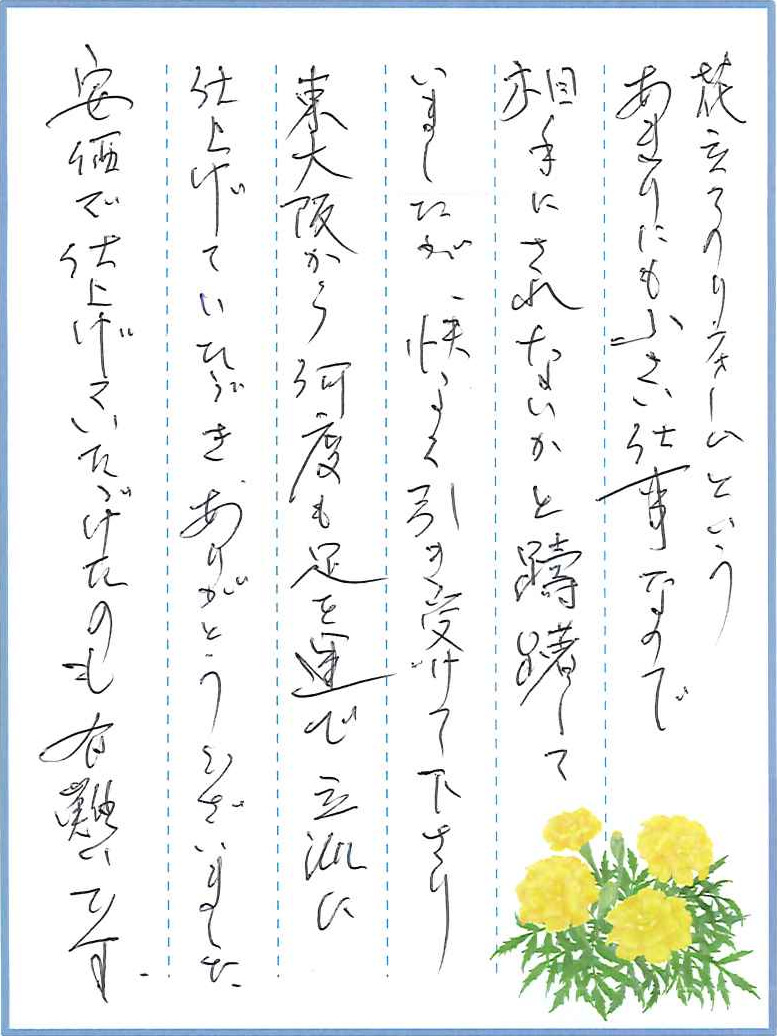 花立てのリフォームという
あまりにも小さい仕事なので
相手にされないかと躊躇して
いましたが 快よく引き受けて下さり
東大阪から 何度も足を運び 立派に
仕上げていただき ありがとうございました
安価で仕上げていたゞけたのも 有難いです.